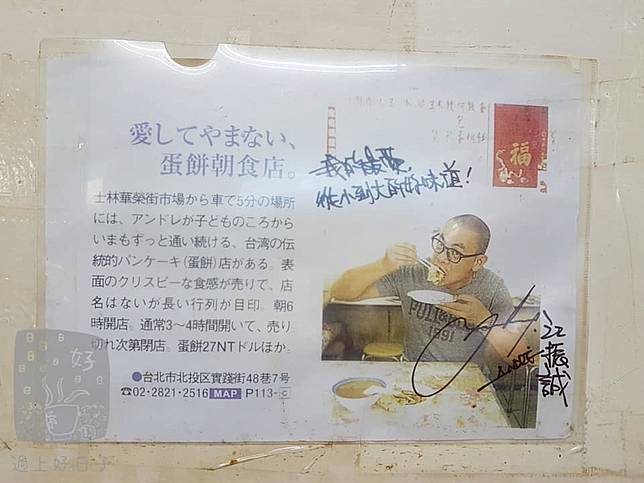 愛してやまない、
蛋餅朝食店。
士林華榮街市場から車で5分の場所
には、アンドレが子どものころから
いまもずっと通い続ける、台湾の伝
統的パンケーキ(蛋餅)店がある。表
面のクリスピーな食感が売りで、店
名はないが長い行列が目印。朝6
時開店。通常3〜4時間開いて、売り
切れ次第閉店。蛋餅27NTドルほか。
●台北市北投区實踐街48巷7号
☎02・2821・2516 MAP P113-C
我的最愛,
從小到大的好味道!
福
1991
江振誠
好
過上好日子